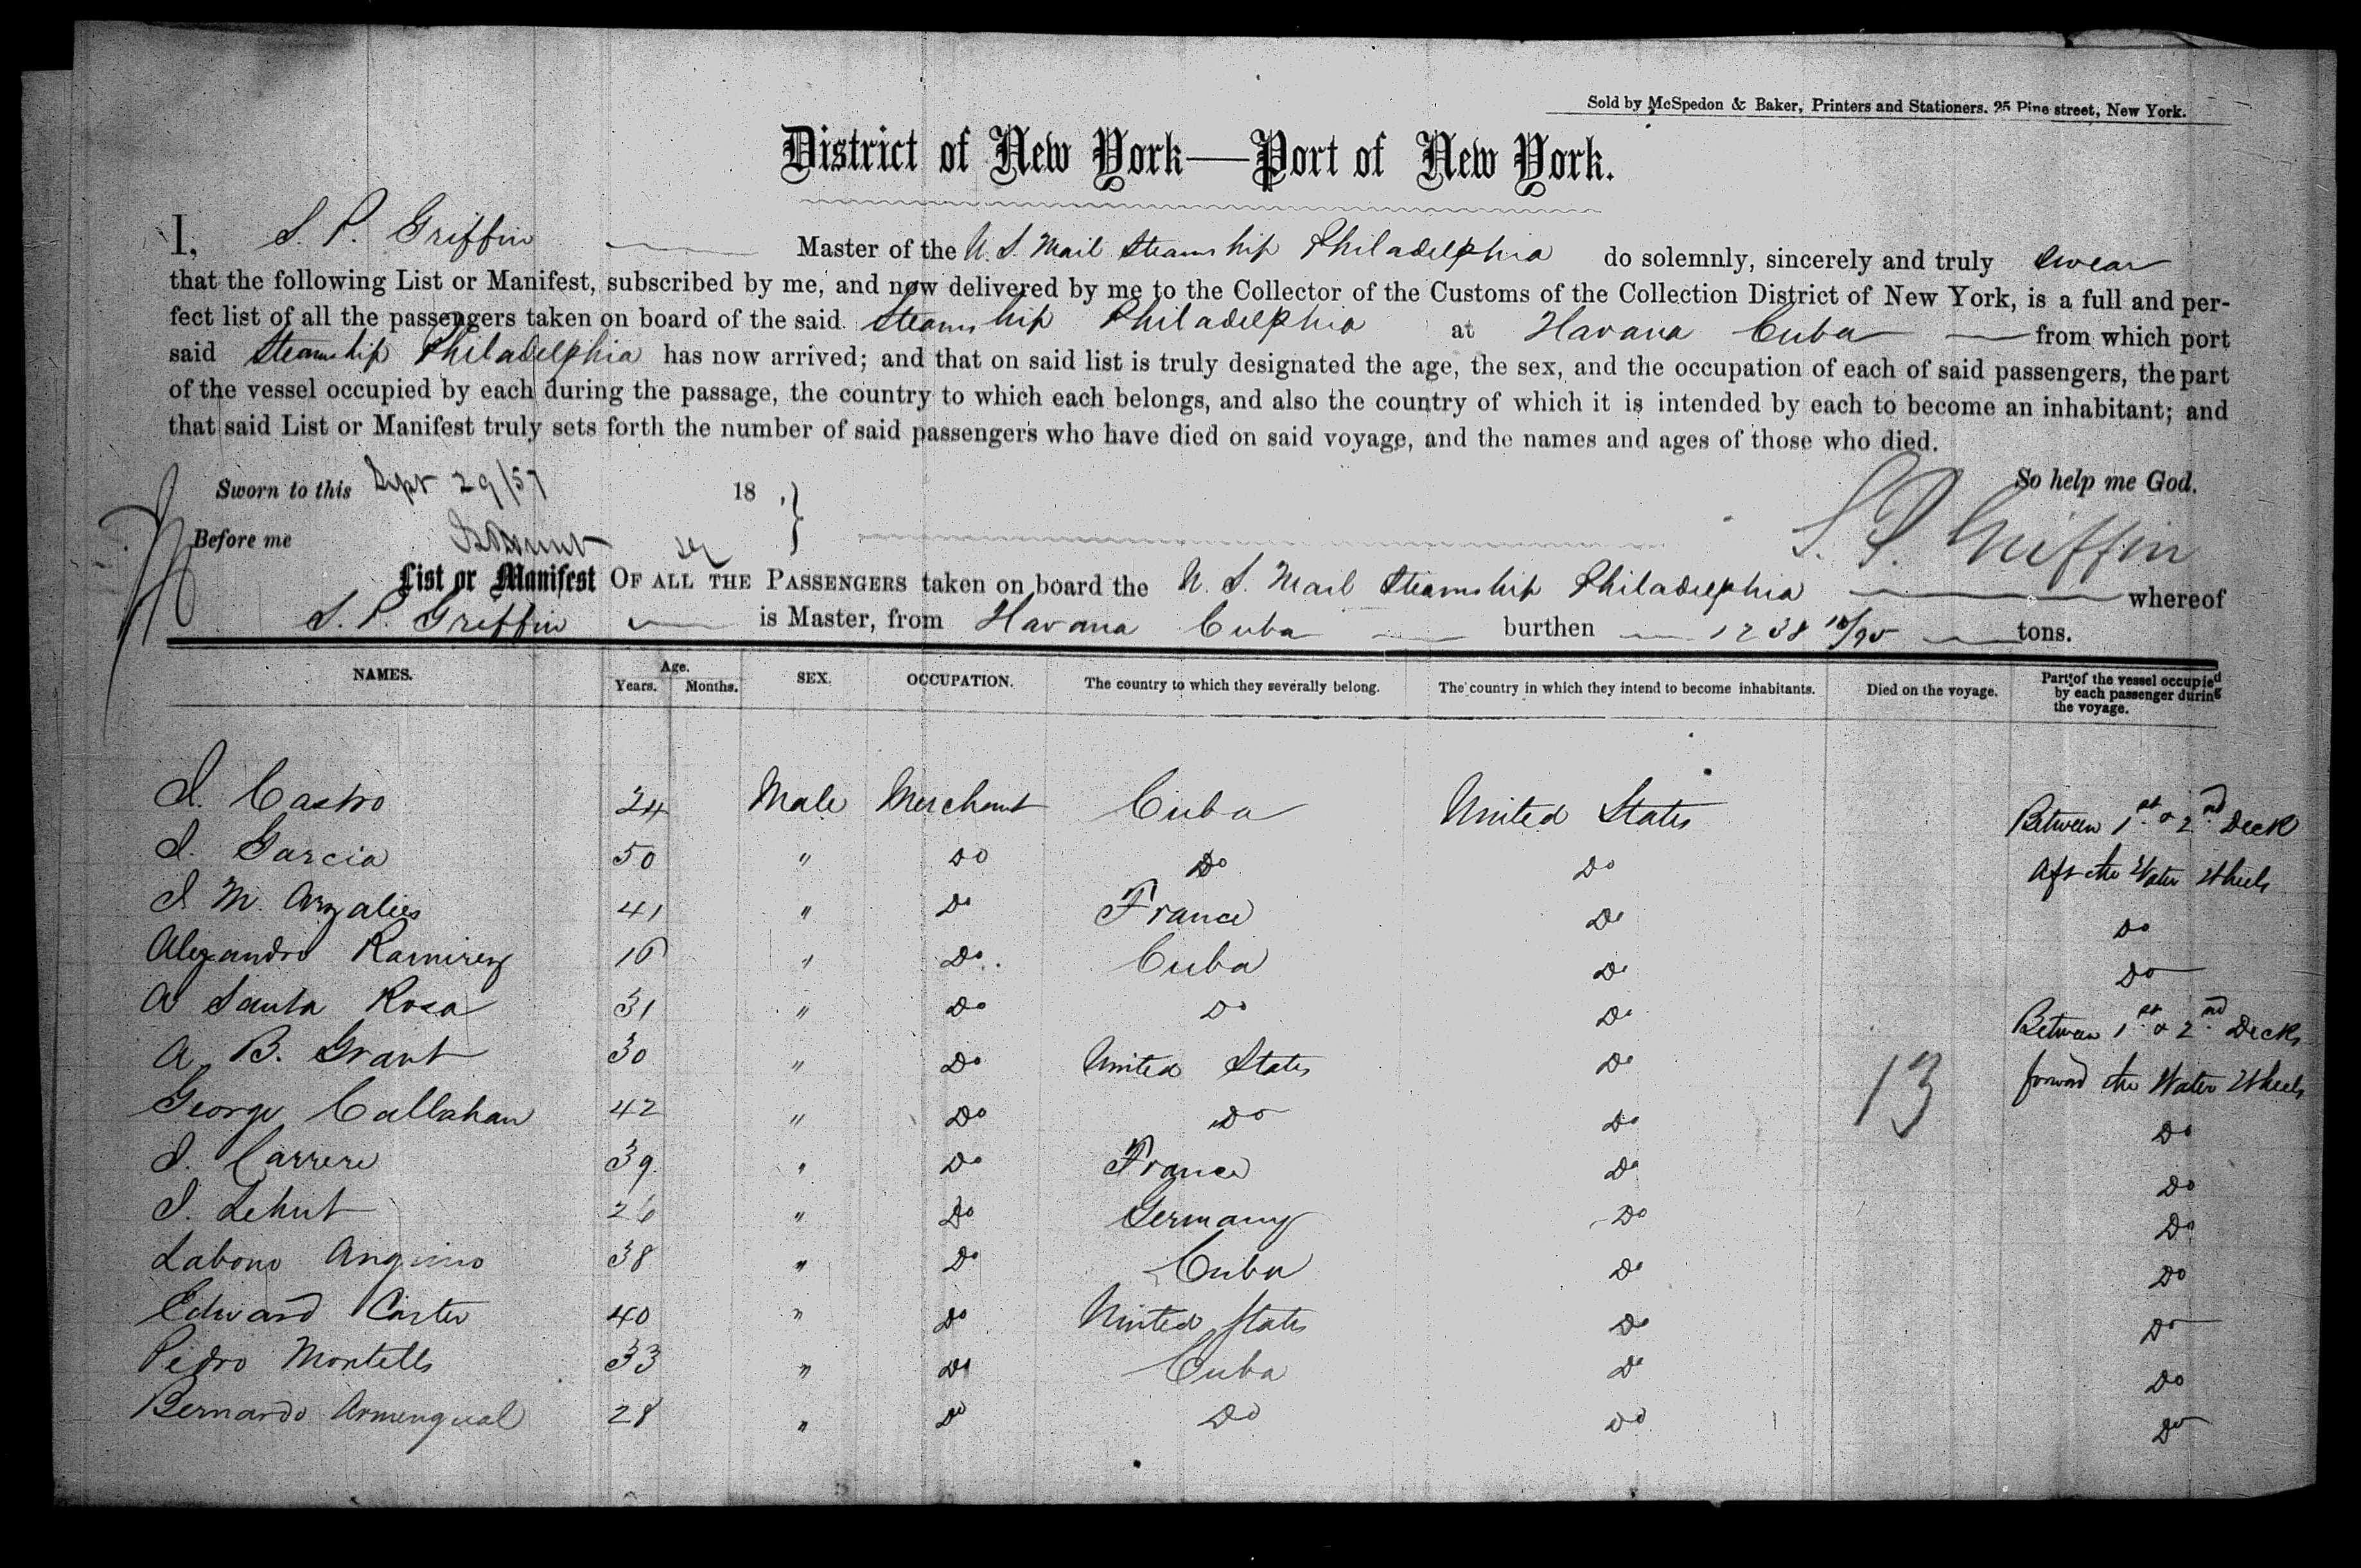 Sold by McSpedon & Baker, Printers and Stationers. 25 Pine street, New York.
District of New York—Port of New York.
I, S. P. Griffin Master of the U. S. Mail Steam ship Philadelphia do solemnly, sincerely and truly swear
that the following List or Manifest, subscribed by me, and now delivered by me to the Collector of the Customs of the Collection District of New York, is a full and per-
fect list of all the passengers taken on board of the said Steam ship Philadelphia at Havana Cuba from which port
said Steamship Philadelphia has now arrived; and that on said list is truly designated the age, the sex, and the occupation of each of said passengers, the part
of the vessel occupied by each during the passage, the country to which each belongs, and also the country of which it is intended by each to become an inhabitant; and
that said List or Manifest truly sets forth the number of said passengers who have died on said voyage, and the names and ages of those who died.
Sworn to this Sept 29/57 18 , } So help me God.
Before me S. P. Griffin
List or Manifest OF ALL THE PASSENGERS taken on board the U. S. Mail Steamship Philadelphia whereof
S. P. Griffin is Master, from Havana Cuba burthen 1238 10/95 tons.
NAMES. Age. Years. Months. SEX. OCCUPATION. The country to which they severally belong. The country in which they intend to become inhabitants. Died on the voyage. Part of the vessel occupied by each passenger during the voyage.
Castro 24 Male Merchant Cuba United States Between 1st & 2nd Deck
Garcia 50 " Do Do Do Aft the Water Wheels
M. 41 " Do France Do Do
Alexandro Ramirez 16 " Do. Cuba Do Do
A Santa Rosa 31 " Do Do Do Between 1st & 2nd Decks
A. B. Grant 30 " Do United States Do forward the Water Wheels
George Callahan 42 " Do Do Do 13 Do
Carrere 39 " Do France Do Do
26 " Do Germany Do Do
38 " Do Cuba Do Do
Edward Carter 40 " Do United States Do Do
Pedro Montells 33 " Do Cuba Do Do
Bernardo Armengual 28 " Do Do Do Do